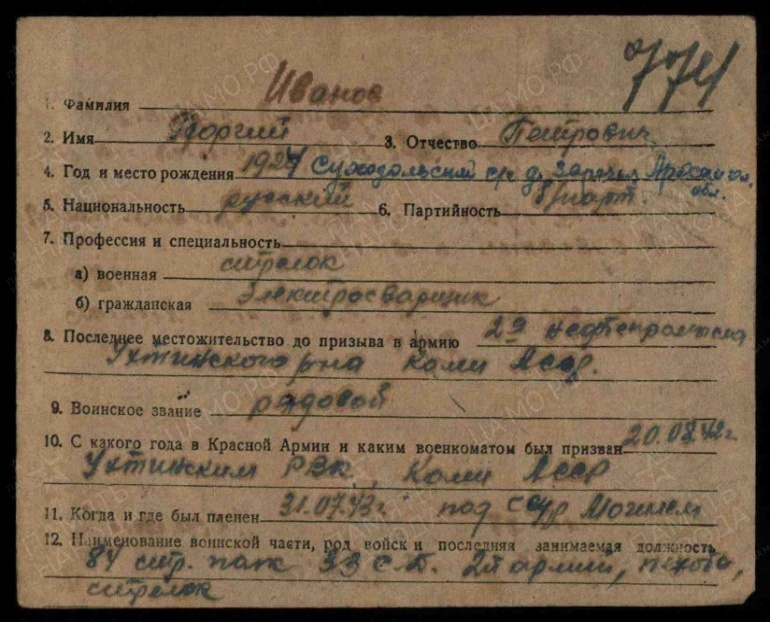 774
1. Фамилия Иванов
2. Имя Георгий 3. Отчество Петрович
4. Год и место рождения 1924 Суходольский с/с д. Заречье
обл.
5. Национальность русский 6. Партийность б/парт.
7. Профессия и специальность
а) военная стрелок
б) гражданская Электросварщик
8. Последнее местожительство до призыва в армию 2й нефтепромысел
Ухтинского р-на Коми Асср.
9. Воинское звание рядовой
10. С какого года в Красной Армии и каким военкоматом был призван 20.08.42г.
Ухтинским РВК, Коми Асср
11. Когда и где был пленен 31.07.43г. под Могилой
12. Наименование воинской части, род войск и последняя занимаемая должность
84 стр. полк 33 с.д. 2й армии, пехота,
стрелок
ЦАМО.РФ